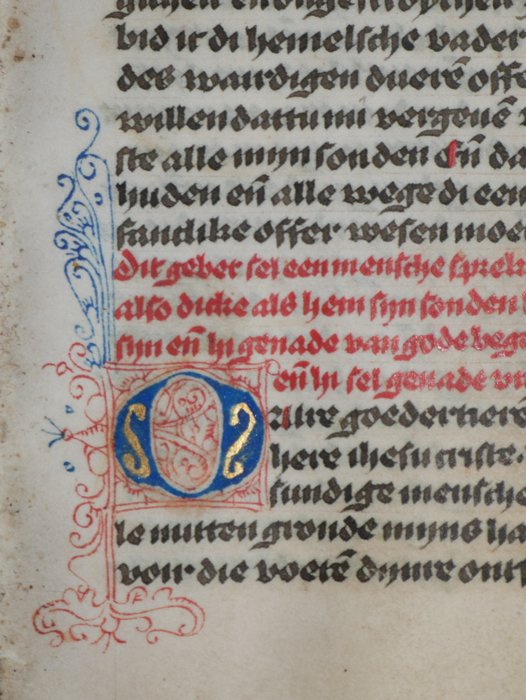 bid ic di hemelsche vader
des waerdigen duerē offe
willen dattu mi vergeuē
ste alle mijn sonden eñ da
huden eñ alle wege di een
fanclike offer wesen moe
Dit gebet sel een mensche sprek
also dicke als hem sijn sonden
sijn eñ hi genade van gode bege
eñ hi sel genade v
alre goedertiere
here ihesu criste
sundige mensche
le mitten gronde mijns ha
voir die voetē dijnre ont